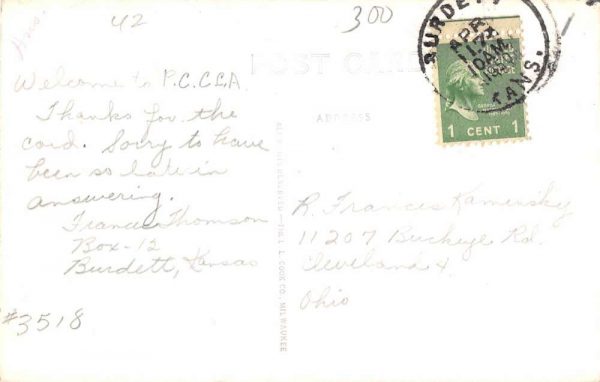 42
300
BURDETT
APR
17
10 AM
KANS.
POST CARD
1 CENT 1
ADDRESS
Welcome to P.C.C.C.A
Thanks for the
card. Sorry to have
been so late in
answering.
Francis Thomson
Box-12
Burdett, Kansas
#3518
THE L. L. COOK CO., MILWAUKEE
R. Francis Kamersky
11207 Buckeye Rd.
Cleveland 4.
Ohio